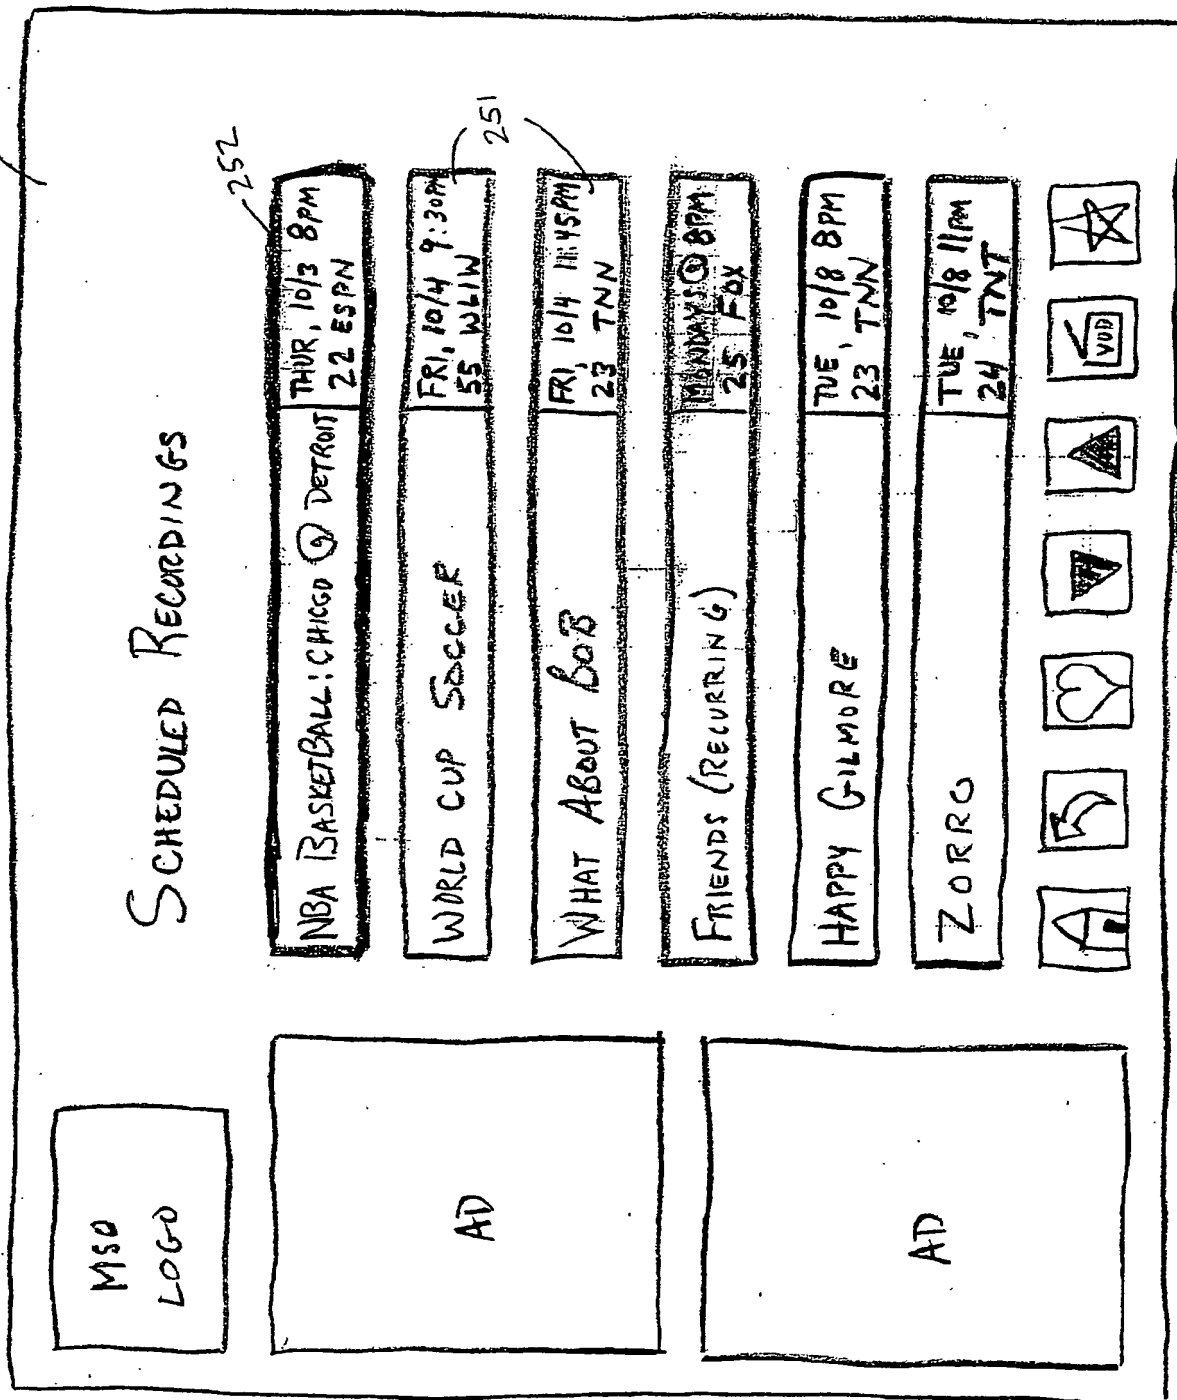 MSO
LOGO
SCHEDULED RECORDINGS
252
NBA BASKETBALL: CHICGO @ DETROIT
THUR, 10/3 8PM
22 ESPN
WORLD CUP SOCCER
FRI, 10/4 9:30PM
55 WLIW
251
WHAT ABOUT BOB
FRI, 10/4 11:45PM
23 TNN
FRIENDS (RECURRING)
MONDAYS @ 8PM
25 FOX
HAPPY GILMORE
TUE, 10/8 8PM
23 TNN
ZORRO
TUE, 10/8 11PM
24 TNT
AD
AD
VOD